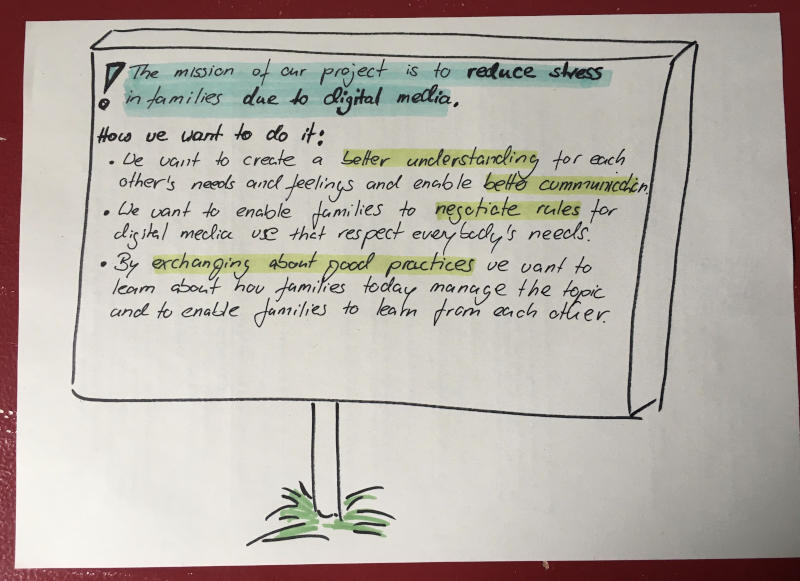 ! The mission of our project is to reduce stress
in families due to digital media.
How we want to do it:
• We want to create a better understanding for each
other's needs and feelings and enable better communication.
• We want to enable families to negotiate rules for
digital media use that respect everybody's needs.
• By exchanging about good practices we want to
learn about how families today manage the topic
and to enable families to learn from each other.